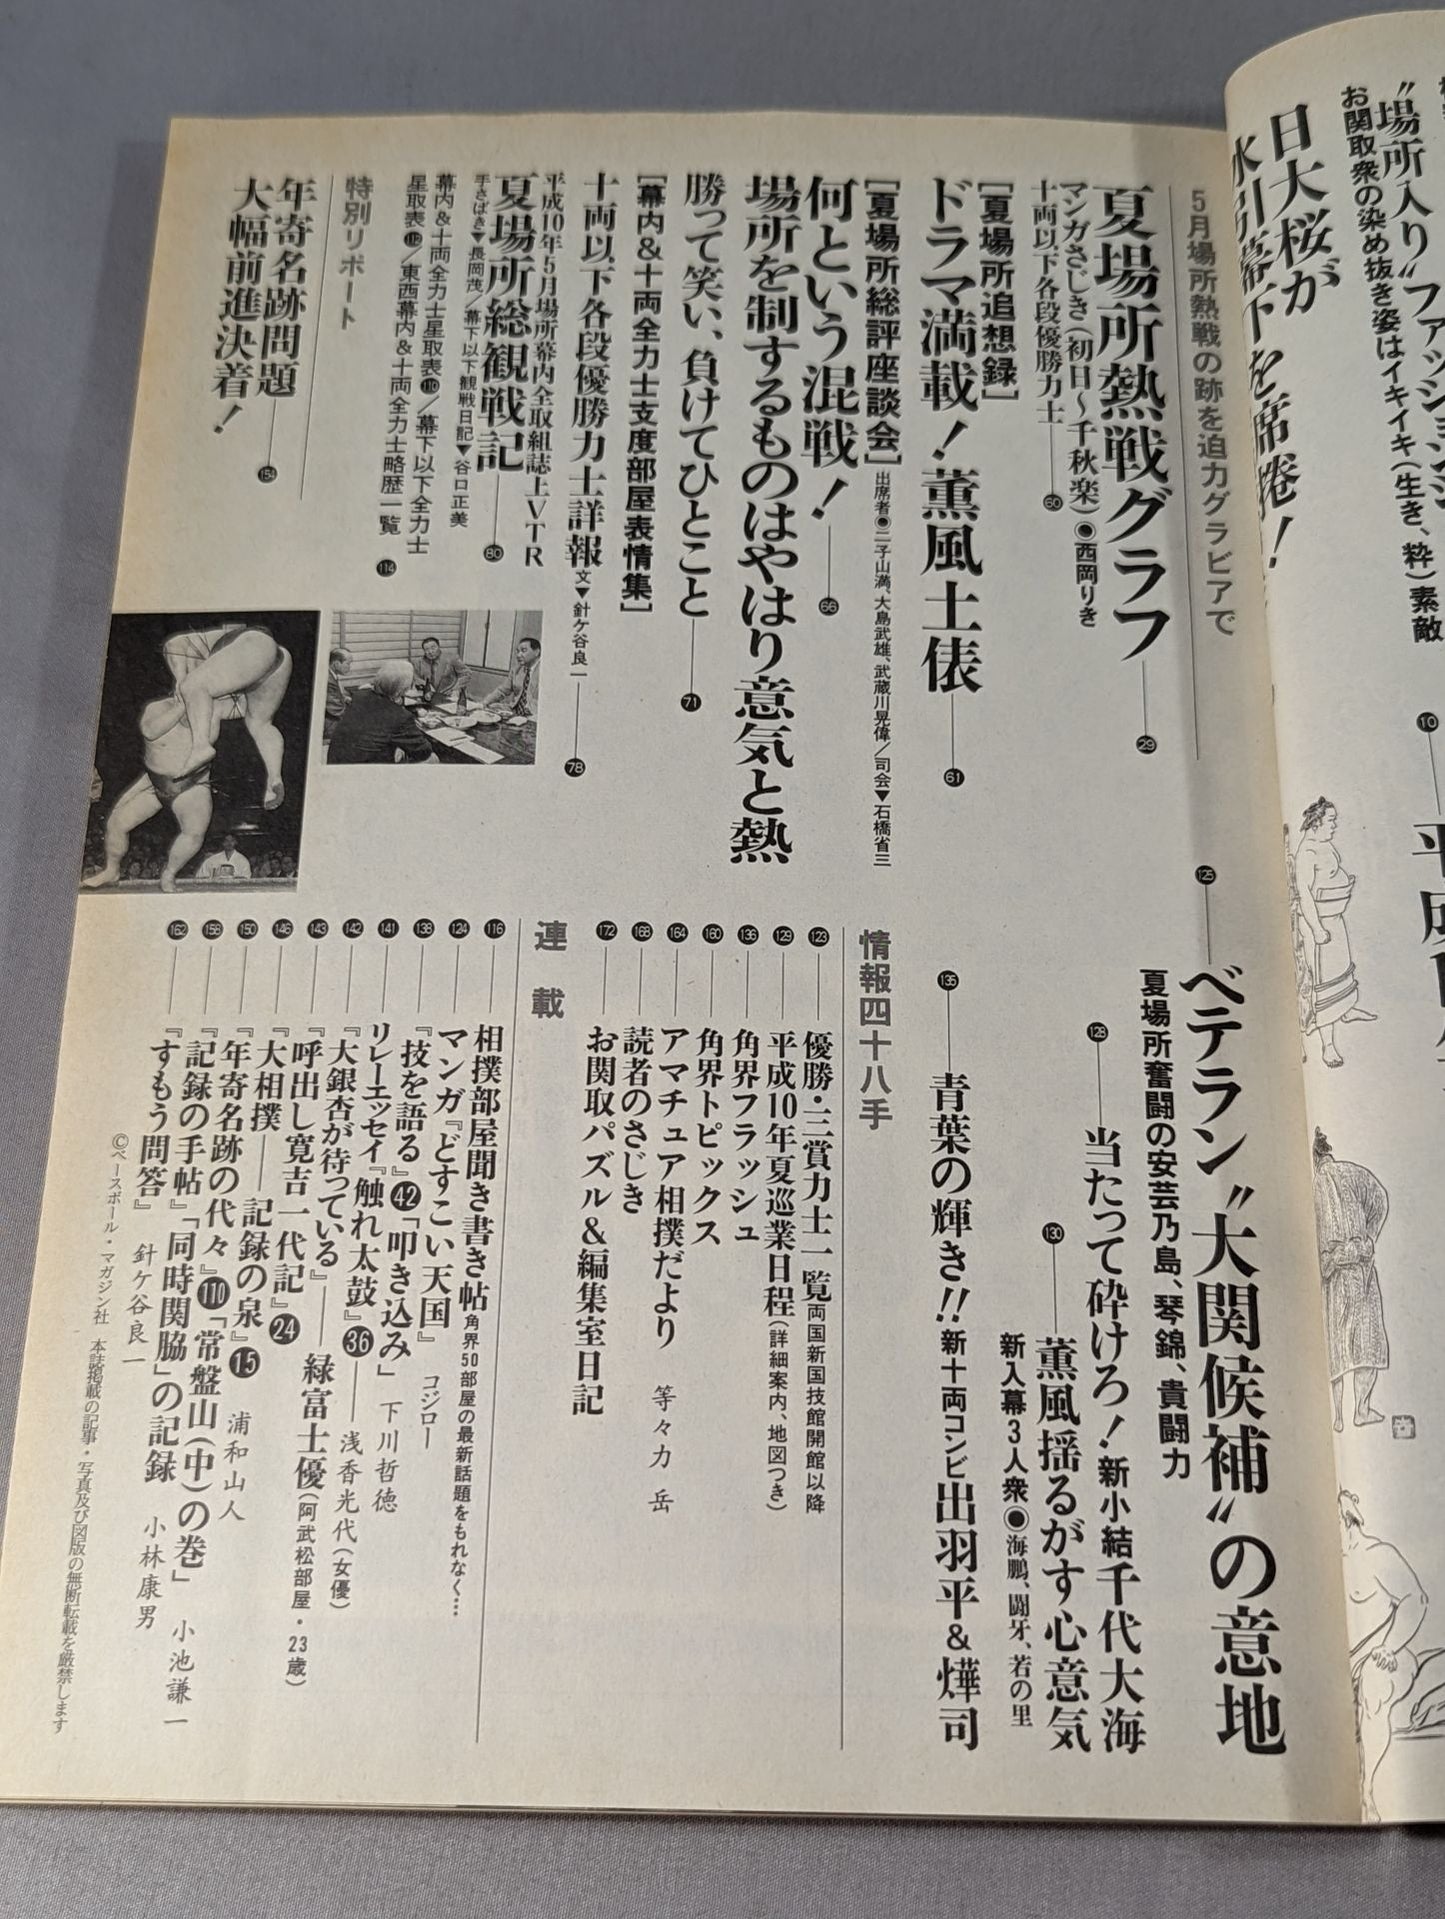 お関取衆の染め抜き姿はイキイキ(生き、粋)素敵
〝場所入り〟ファッション
10
日大桜が
水引幕下を席捲！
5月場所熱戦の跡を迫力グラビアで
夏場所熱戦グラフ 29
マンガさじき(初日〜千秋楽)●西岡りき
十両以下各段優勝力士 60
[夏場所追想録]
ドラマ満載！薫風土俵 61
[夏場所総評座談会] 出席者●二子山満、大島武雄、武蔵川晃偉／司会▼石橋省三
何という混戦！ 66
場所を制するものはやはり意気と熱
勝って笑い、負けてひとこと 71
[幕内&十両全力士支度部屋表情集]
十両以下各段優勝力士詳報 文▼針ケ谷良一 78
平成10年5月場所幕内全取組誌上VTR
夏場所総観戦記 80
手さばき▼長岡茂／幕下以下観戦日記▼谷口正美
幕内&十両全力士星取表110／幕下以下全力士
星取表112／東西幕内&十両全力士略歴一覧 114
特別リポート
年寄名跡問題 154
大幅前進決着！
125 ベテラン〝大関候補〟の意地
夏場所奮闘の安芸乃島、琴錦、貴闘力
128 当たって砕けろ！新小結千代大海
130 薫風揺るがす心意気
新入幕3人衆●海鵬、闘牙、若の里
135 青葉の輝き!!新十両コンビ出羽平&燁司
情報四十八手
123 優勝・三賞力士一覧 両国新国技館開館以降
129 平成10年夏巡業日程(詳細案内、地図つき)
136 角界フラッシュ
160 角界トピックス
164 アマチュア相撲だより 等々力 岳
168 読者のさじき
172 お関取パズル&編集室日記
連載
116 相撲部屋聞き書き帖 角界50部屋の最新話題をもれなく…
124 マンガ『どすこい天国』 コジロー
138 『技を語る』42「叩き込み」 下川哲徳
141 リレーエッセイ『触れ太鼓』36――浅香光代(女優)
142 『大銀杏が待っている』――緑富士優(阿武松部屋・23歳)
143 『呼出し寛吉一代記』24
146 『大相撲――記録の泉』15 浦和山人
150 『年寄名跡の代々』110「常盤山(中)の巻」 小池謙一
158 『記録の手帖』「同時関脇」の記録 小林康男
162 『すもう問答』 針ケ谷良一
©ベースボール・マガジン社 本誌掲載の記事・写真及び図版の無断転載を厳禁します